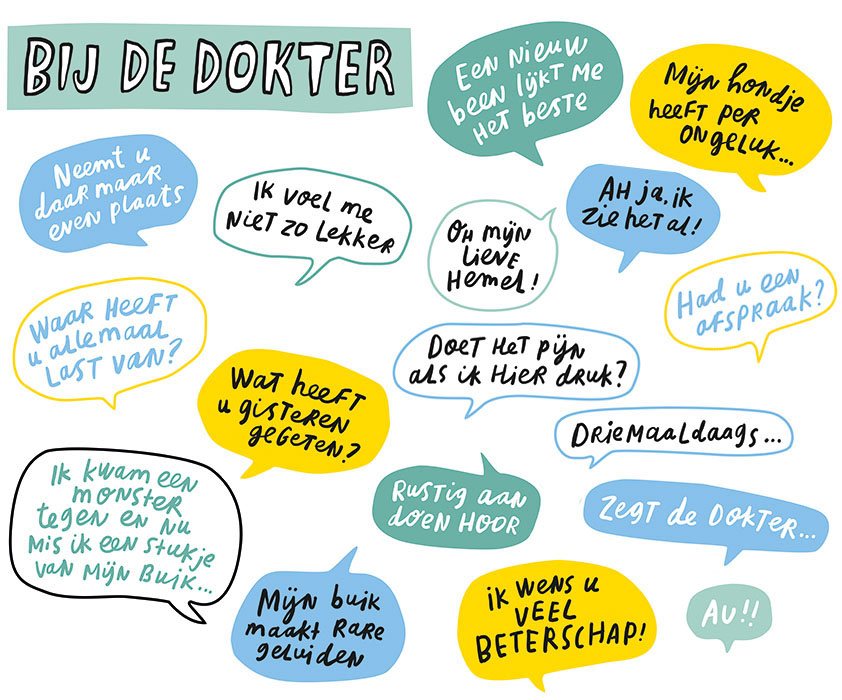 BIJ DE DOKTER
EEN NIEUW
been lijkt me
HET beste
Mijn hondje
heeft per
ongeluk...
Neemt u
daar maar
even plaats
Ik voel me
niet zo lekker
OH mijn
lieve
Hemel!
AH ja, ik
zie het al!
Had u een
afspraak?
WAAR HEEFT
u allemaal
LAST VAN?
Doet Het pijn
als ik Hier druk?
Wat heeft
u gisteren
gegeten?
Driemaaldaags...
Ik kwam een
monster
tegen en nu
mis ik een stukje
van mijn buik...
Rustig aan
doen HOOR
Zegt de DOKTER...
Mijn buik
maakt RARE
geluiden
ik wens u
VEEL
BETERSCHAP!
AU!!